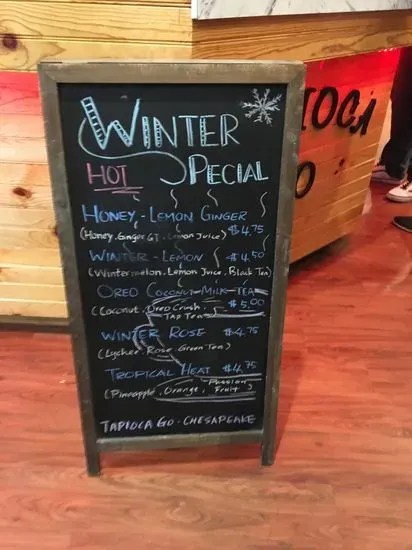 WINTER
HOT SPECIAL
HONEY-LEMON GINGER
(Honey, Ginger GT, Lemon Juice) $4.75
WINTER-LEMON $4.50
(Wintermelon, Lemon Juice, Black Tea)
OREO COCONUT-MILK-TEA
(Coconut, Oreo Crush, $5.00
Tap Tea)
WINTER ROSE $4.75
(Lychee, Rose, Green Tea)
TROPICAL HEAT $4.75
(Pineapple, Orange, Passion Fruit)
TAPIOCA GO - CHESAPEAKE
IOCA
O